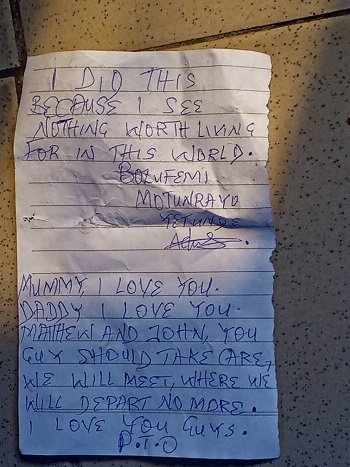 I DID THIS
BECAUSE I SEE
NOTHING WORTH LIVING
FOR IN THIS WORLD.
BOLUFEMI
MOTUNRAYO
YETUNDE
MUMMY I LOVE YOU.
DADDY I LOVE YOU.
MATHEW AND JOHN, YOU
GUY SHOULD TAKE CARE,
WE WILL MEET, WHERE WE
WILL DEPART NO MORE.
I LOVE YOU GUYS.
P.T.O